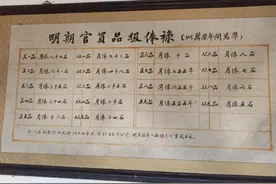 明朝官員品級俸祿 （以萬曆年間為準）
正一品 月俸八十七石 從一品 月俸七十二石 正六品 月俸 十石 從六品 月俸 八石
正二品 月俸六十一石 從二品 月俸四十八石 正七品 月俸七石五斗 從七品 月俸 七石
正三品 月俸三十五石 從三品 月俸二十六石 正八品 月俸六石五斗 從八品 月俸 六石
正四品 月俸二十四石 從四品 月俸二十一石 正九品 月俸五石五斗 從九品 月俸 五石
正五品 月俸 十六石 從五品 月俸 十四石